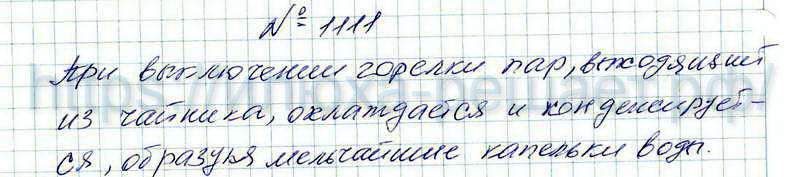 № 1111
При выключении горелки пар, выходящий
из чайника, охлаждается и конденсирует-
ся, образуя мельчайшие капельки воды.